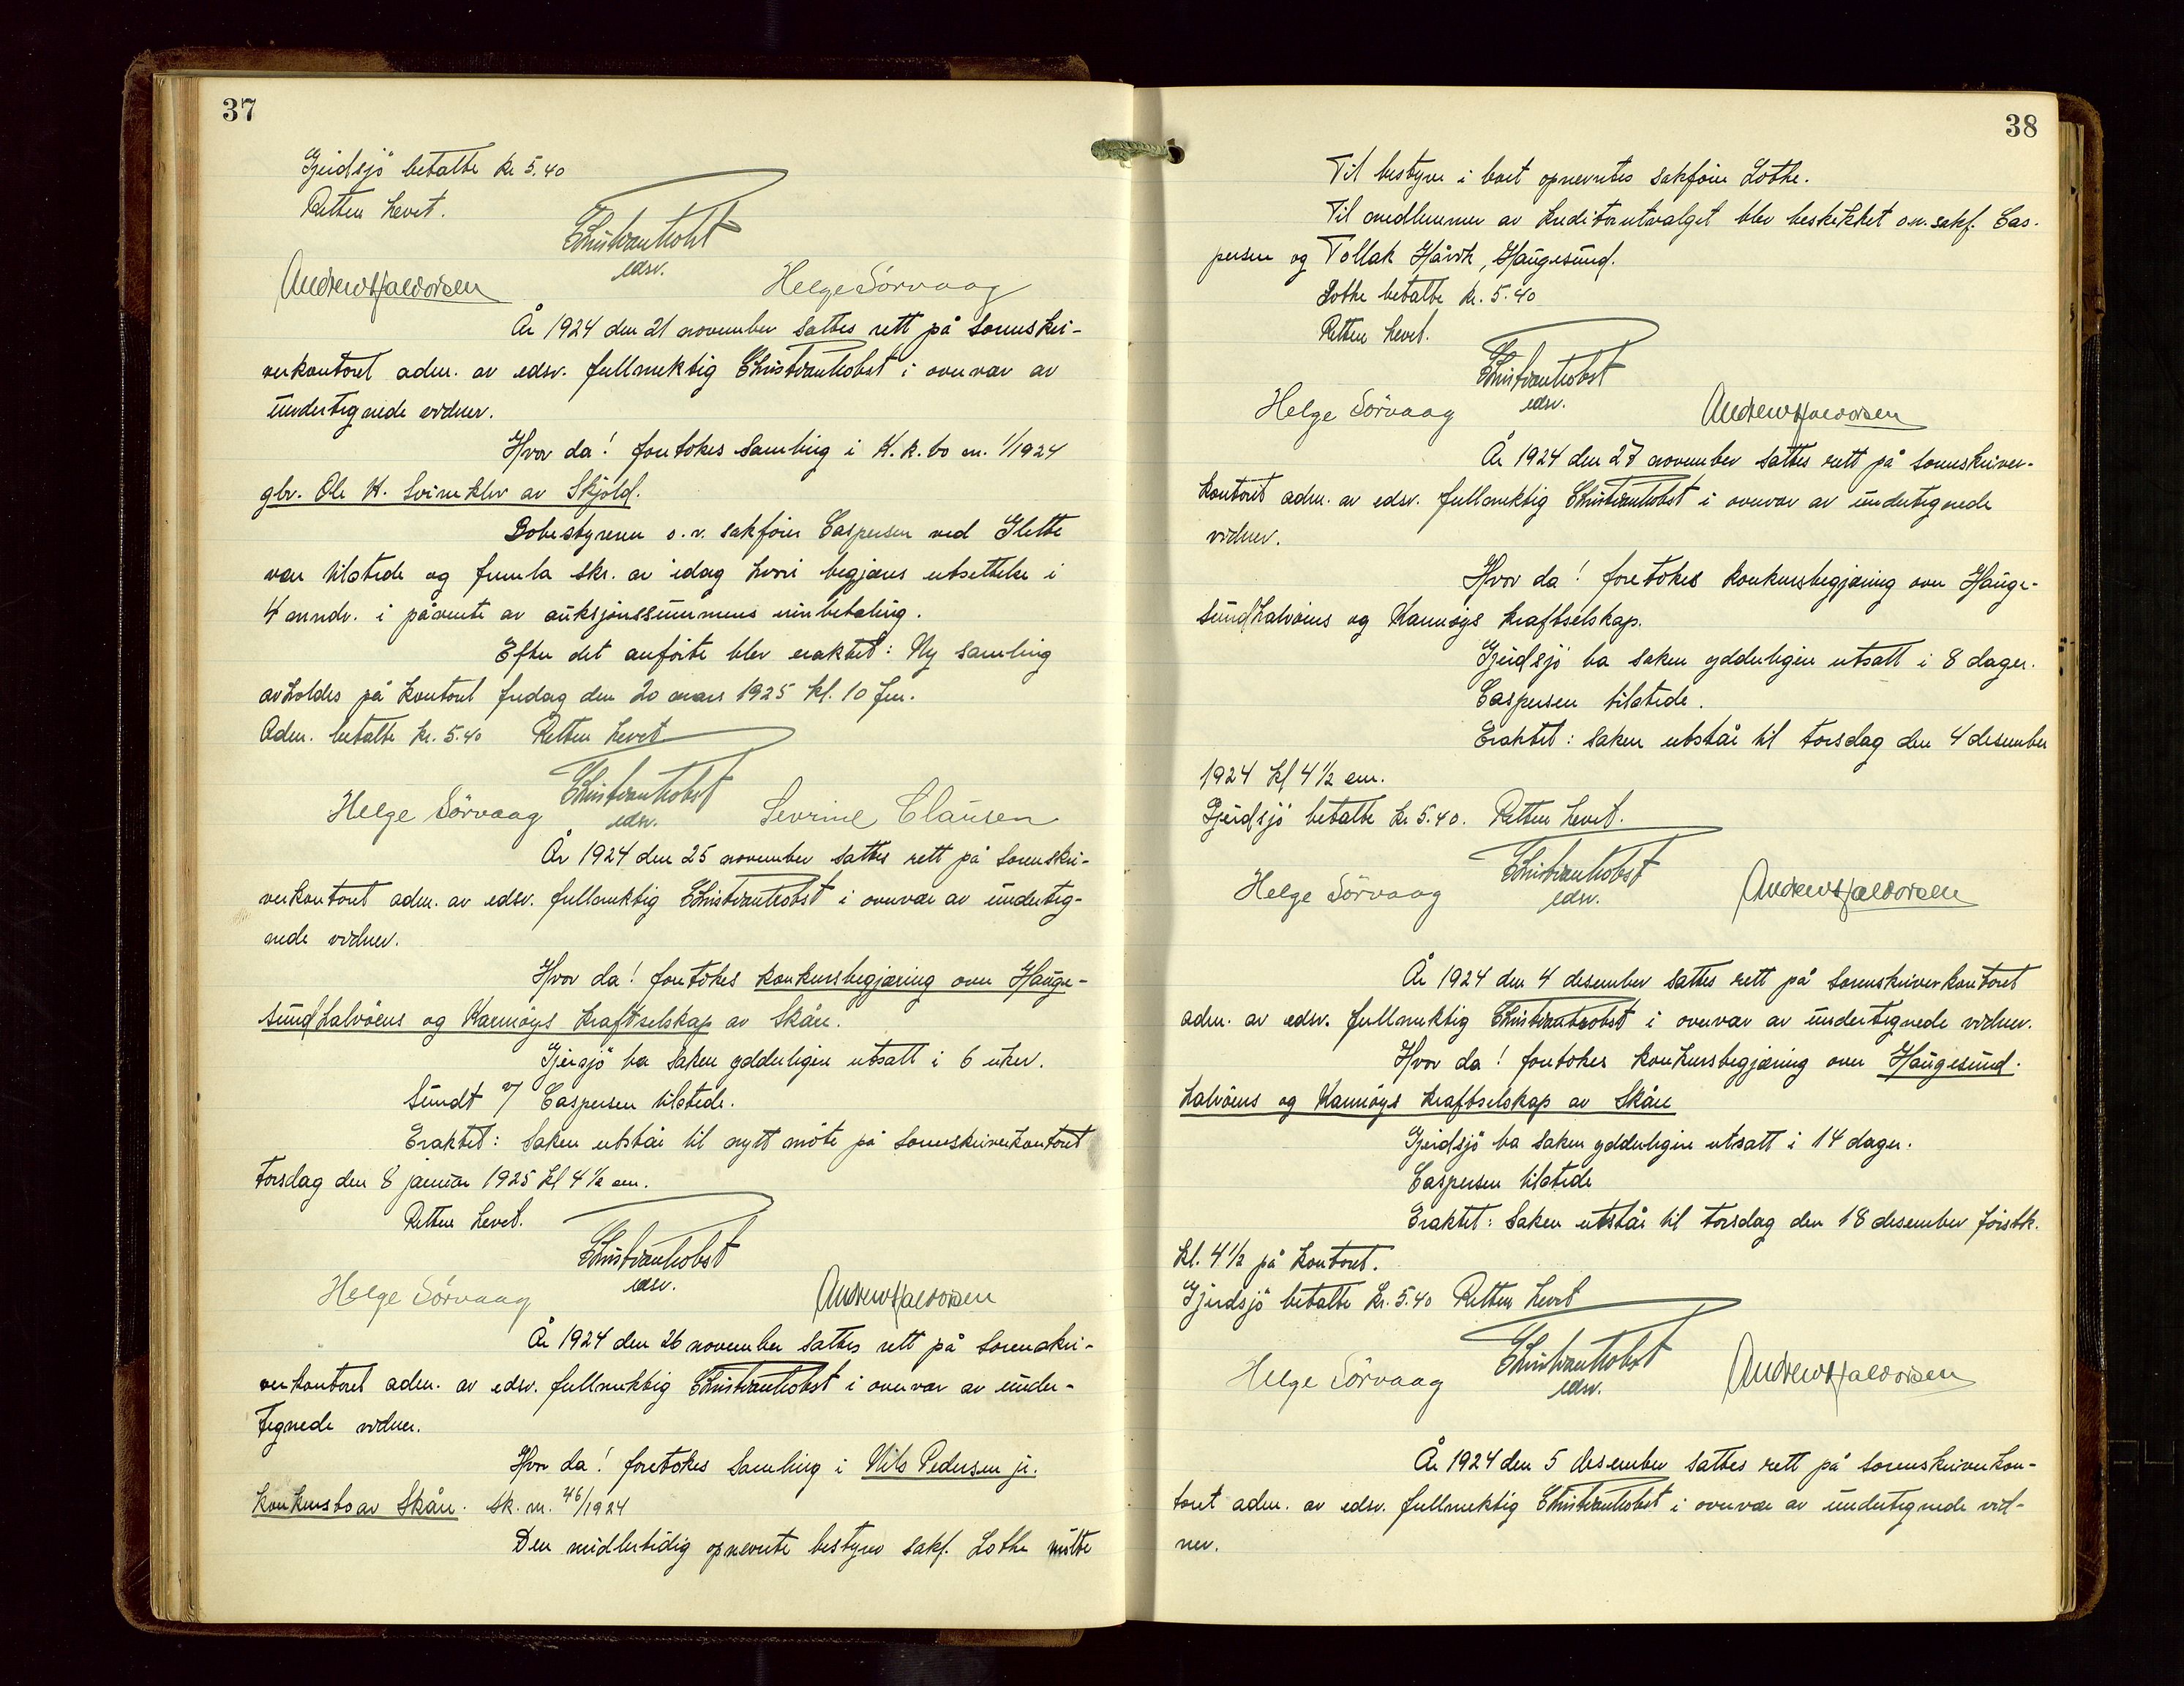 37
Gjeidsjö betalte kr 5.40
Retten hevet.
Chr Svanholst
edsv.
Andrew Haldorsen Helge Sörvaag
År 1924 den 21 november sattes rett på sorenskri-
verkontoret adm. av edsv. fullmektig Chr Svanholst i overvær av
undertegnede vidner.
Hvor da! foretokes samling i K.k.bo nr. 1/1924
gbr. Ole K. Svineklev av Skjold.
Bobestyreren o.r. sakförer Caspersen ved Glette
var tilstede og fremla skr. av idag hvori begjæres utsettelse i
4 mndr. i påvente av auksjonssummens innbetaling.
Efter det anförte blev eraktet: Ny samling
avholdes på kontoret fredag den 20 mars 1925 kl. 10 fm.
Adm. betalte kr. 5.40 Retten hevet
Chr Svanholst
Helge Sörvaag edsv. Sevrine Clausen
År 1924 den 25 november sattes rett på sorenskri-
verkontoret adm. av edsv. fullmektig Chr Svanholst i overvær av underteg-
nede vidner.
Hvor da! foretokes konkursbegjæring over Hauge-
sundhalvöens og Karmöys kraftselskap av Skåre.
Gjersjö ba saken ydderligere utsatt i 6 uker.
Sundt v/ Caspersen tilstede.
Eraktet: Saken utstår til nytt möte på sorenskriverkontoret
torsdag den 8 januar 1925 kl 4 1/2 em.
Retten hevet.
Chr Svanholst
Helge Sörvaag edsv. Andrew Haldorsen
År 1924 den 26 november sattes rett på sorenskri-
verkontoret adm. av edsv. fullmektig Chr Svanholst i overvær av under-
tegnede vidner.
Hvor da! foretokes samling i Nils Pedersen jr.
konkursbo av Skåre. Sk. nr. 46/1924
Den midlertidig opnevnte bestyrer sakf. Lothe mötte
38
Til bestyrer i boet opnevntes sakförer Lothe.
Til medlemmer av kreditorutvalget blev beskikket o.r. sakf. Cas-
persen og Tollak Håvik, Haugesund.
Lothe betalte kr. 5.40
Retten hevet.
Chr Svanholst
Helge Sörvaag edsv. Andrew Haldorsen
År 1924 den 27 november sattes rett på sorenskriver-
kontoret adm. av edsv. fullmektig Chr Svanholst i overvær av undertegnede
vidner.
Hvor da! foretokes konkursbegjæring over Hauge-
sundhalvöens og Karmöys kraftselskap.
Gjeidsjö ba saken ydderligere utsatt i 8 dager.
Caspersen tilstede.
Eraktet: saken utstår til torsdag den 4 desember
1924 kl 4 1/2 em.
Gjeidsjö betalte kr 5.40. Retten hevet.
Chr Svanholst
Helge Sörvaag edsv. Andrew Haldorsen
År 1924 den 4 desember sattes rett på sorenskriverkontoret
adm. av edsv. fullmektig Chr Svanholst i overvær av undertegnede vidner.
Hvor da! foretokes konkursbegjæring over Haugesund-
halvöens og Karmöys kraftselskap av Skåre
Gjeidsjö ba saken ydderligere utsatt i 14 dager.
Caspersen tilstede
Eraktet: Saken utstår til torsdag den 18 desember förstk.
kl. 4 1/2 på kontoret.
Gjeidsjö betalte kr. 5.40 Retten hevet
Chr Svanholst
Helge Sörvaag edsv. Andrew Haldorsen
År 1924 den 5 desember sattes rett på sorenskriverkon-
toret adm. av edsv. fullmektig Chr Svanholst i overvær av undertegnede vid-
ner.